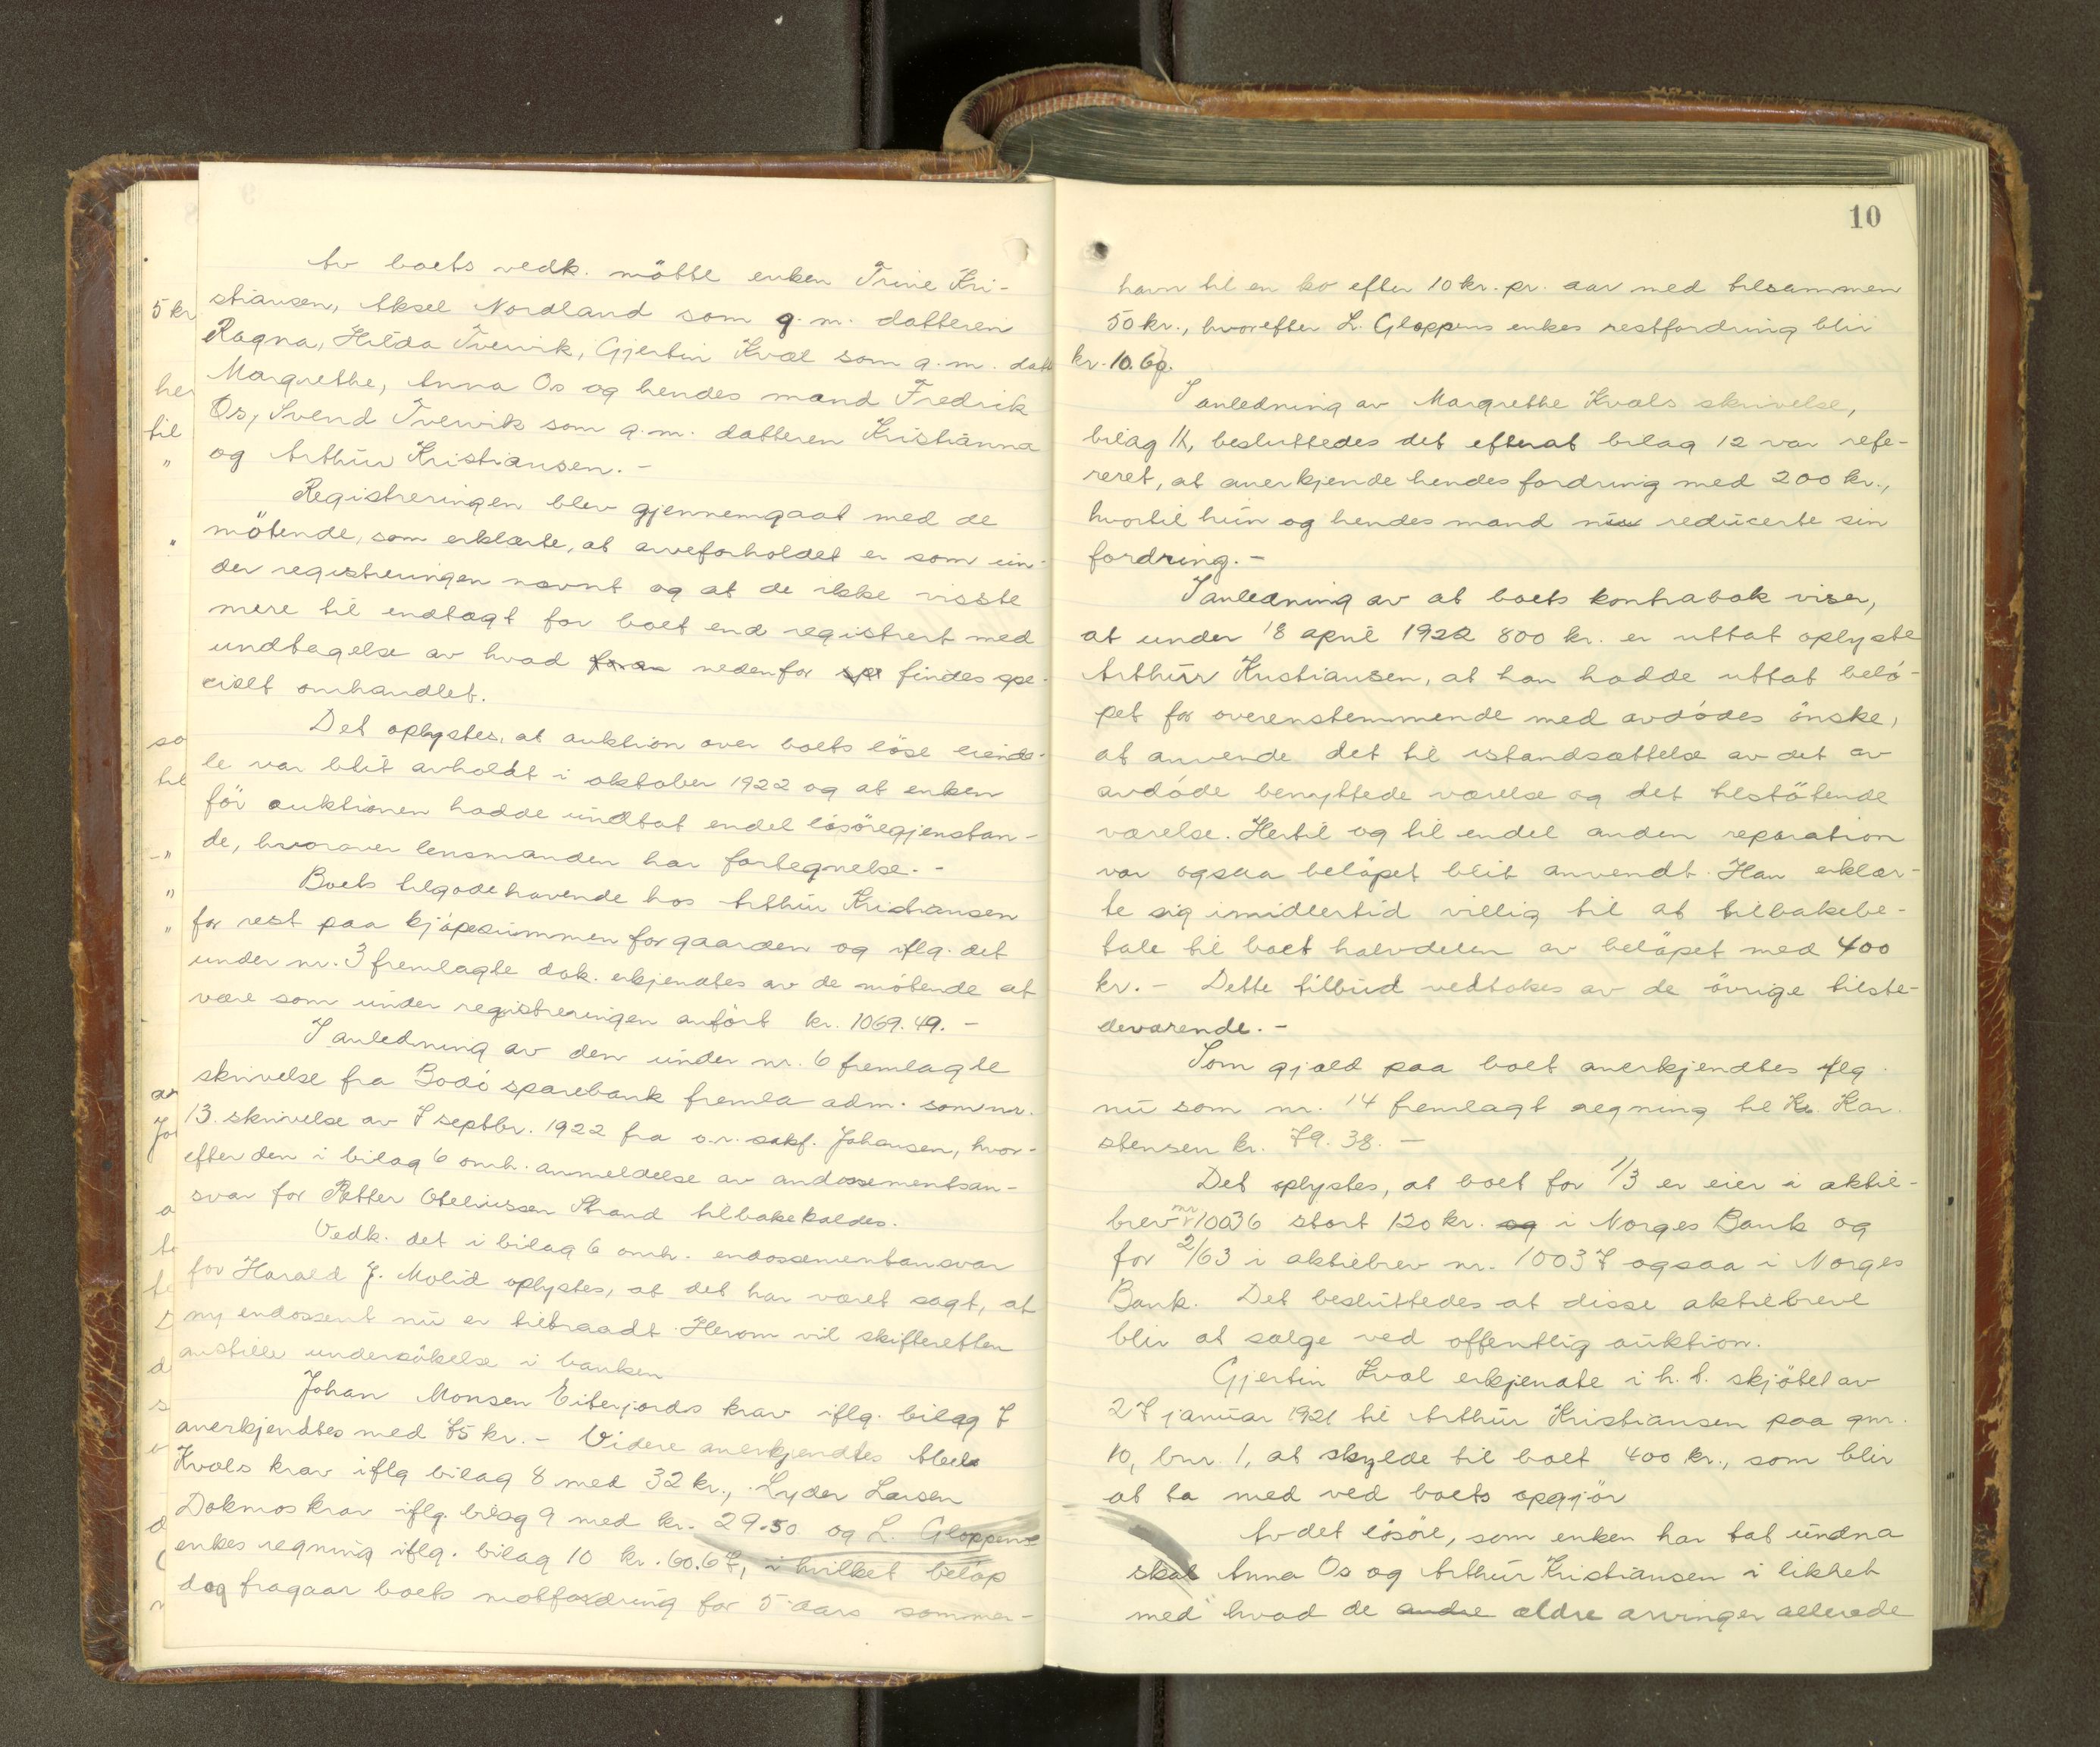 Av boets vedk. mötte enken Trine Kri-
stiansen, Aksel Nordland som g. m. datteren
Ragna, Hilda Tvervik, Gjertin Kval som g. m. datt
Margrethe, Anna Os og hendes mand Fredrik
Os, Svend Tvervik som g. m. datteren Kristianna
og Arthur Kristiansen. -
Registreringen blev gjennemgaat med de
mötende, som erklærte, at arveforholdet er som un-
der registreringen nævnt og at de ikke visste
mere til indtægt for boet end registrert med
undtagelse av hvad nedenfor findes spe-
cielt omhandlet.
Det oplystes, at auktion over boets löse eiende-
le var blit avholdt i oktober 1922 og at enken
för auktionen hadde undtat endel lösöregjenstan-
de, hvorover lensmanden har fortegnelse. -
Boets tilgodehavende hos Arthur Kristiansen
for rest paa kjöpesummen for gaarden og iflg. det
under nr. 3 fremlagte dok. erkjendtes av de mötende at
være som under registreringen anfört kr. 1069.49. -
I anledning av den under nr. 6 fremlagte
skrivelse fra Bodö sparebank fremla adm. som nr.
13. skrivelse av 7 septbr. 1922 fra o.r. sakf. Johansen, hvor-
efter den i bilag 6 omh. anmeldelse av andossementsan-
svar for Petter Oteliussen Strand tilbakekaldes.
Vedk. det i bilag 6 omh. endossementansvar
for Harald J. Molid oplystes, at det har været sagt, at
ny endossent nu er tiltraadt. Herom vil skifteretten
anstille undersökelse i banken
Johan Monsen Eiterjords krav iflg. bilag 7
anerkjendtes med 75 kr. - Videre anerkjendtes
Kvals krav iflg bilag 8 med 32 kr., Lyder Larsen
Dokmos krav iflg. bilag 9 med kr. 29.50 og L. Gloppens
enkes regning iflg. bilag 10 kr. 60.67, i hvilket belöp
dog fragaar boets motfordring for 5 aars sommer-
5 kr
her
til
"
"
so
til
- "
"
"
10
havn til en ko efter 10 kr. pr. aar med tilsammen
50 kr., hvorefter L. Gloppens enkes restfordring blir
kr. 10.67.
I anledning av Margrethe Kvals skrivelse,
bilag 11, besluttedes det efterat bilag 12 var refe-
reret, at anerkjende hendes fordring med 200 kr.,
hvortil hun og hendes mand nu reducerte sin
fordring. -
I anledning av at boets kontrabok viser,
at under 18 april 1922 800 kr. er uttat oplyste
Arthur Kristiansen, at han hadde uttat belö-
pet for overenstemmende med avdödes önske,
at anvende det til istandsættelse av det av
avdöde benyttede værelse og det tilstötende
værelse. Hertil og til endel anden reparation
var ogsaa belöpet blit anvendt. Han erklær-
te sig imidlertid villig til at tilbakebe-
tale til boet halvdelen av belöpet med 400
kr. - Dette tilbud vedtokes av de övrige tilste-
deværende. -
Som gjæld paa boet anerkjendtes iflg.
nu som nr. 14 fremlagt regning til Kr. Kar-
stensen kr. 79.38. -
Det oplystes, at boet for 1/3 er eier i aktie-
brev nr 10036 stort 120 kr. og i Norges Bank og
for 2/63 i aktiebrev nr. 10037 ogsaa i Norges
Bank. Det besluttedes at disse aktiebreve
blir at sælge ved offentlig auktion.
Gjertin Kval erkjendte i h. t. skjötet av
27 januar 1921 til Arthur Kristiansen paa gnr.
10, bnr. 1, at skylde til boet 400 kr., som blir
at ta med ved boets opgjör
Av det lösöre, som enken har tat undna
skal Anna Os og Arthur Kristiansen i likhet
med hvad de andre ældre arvinger allerede